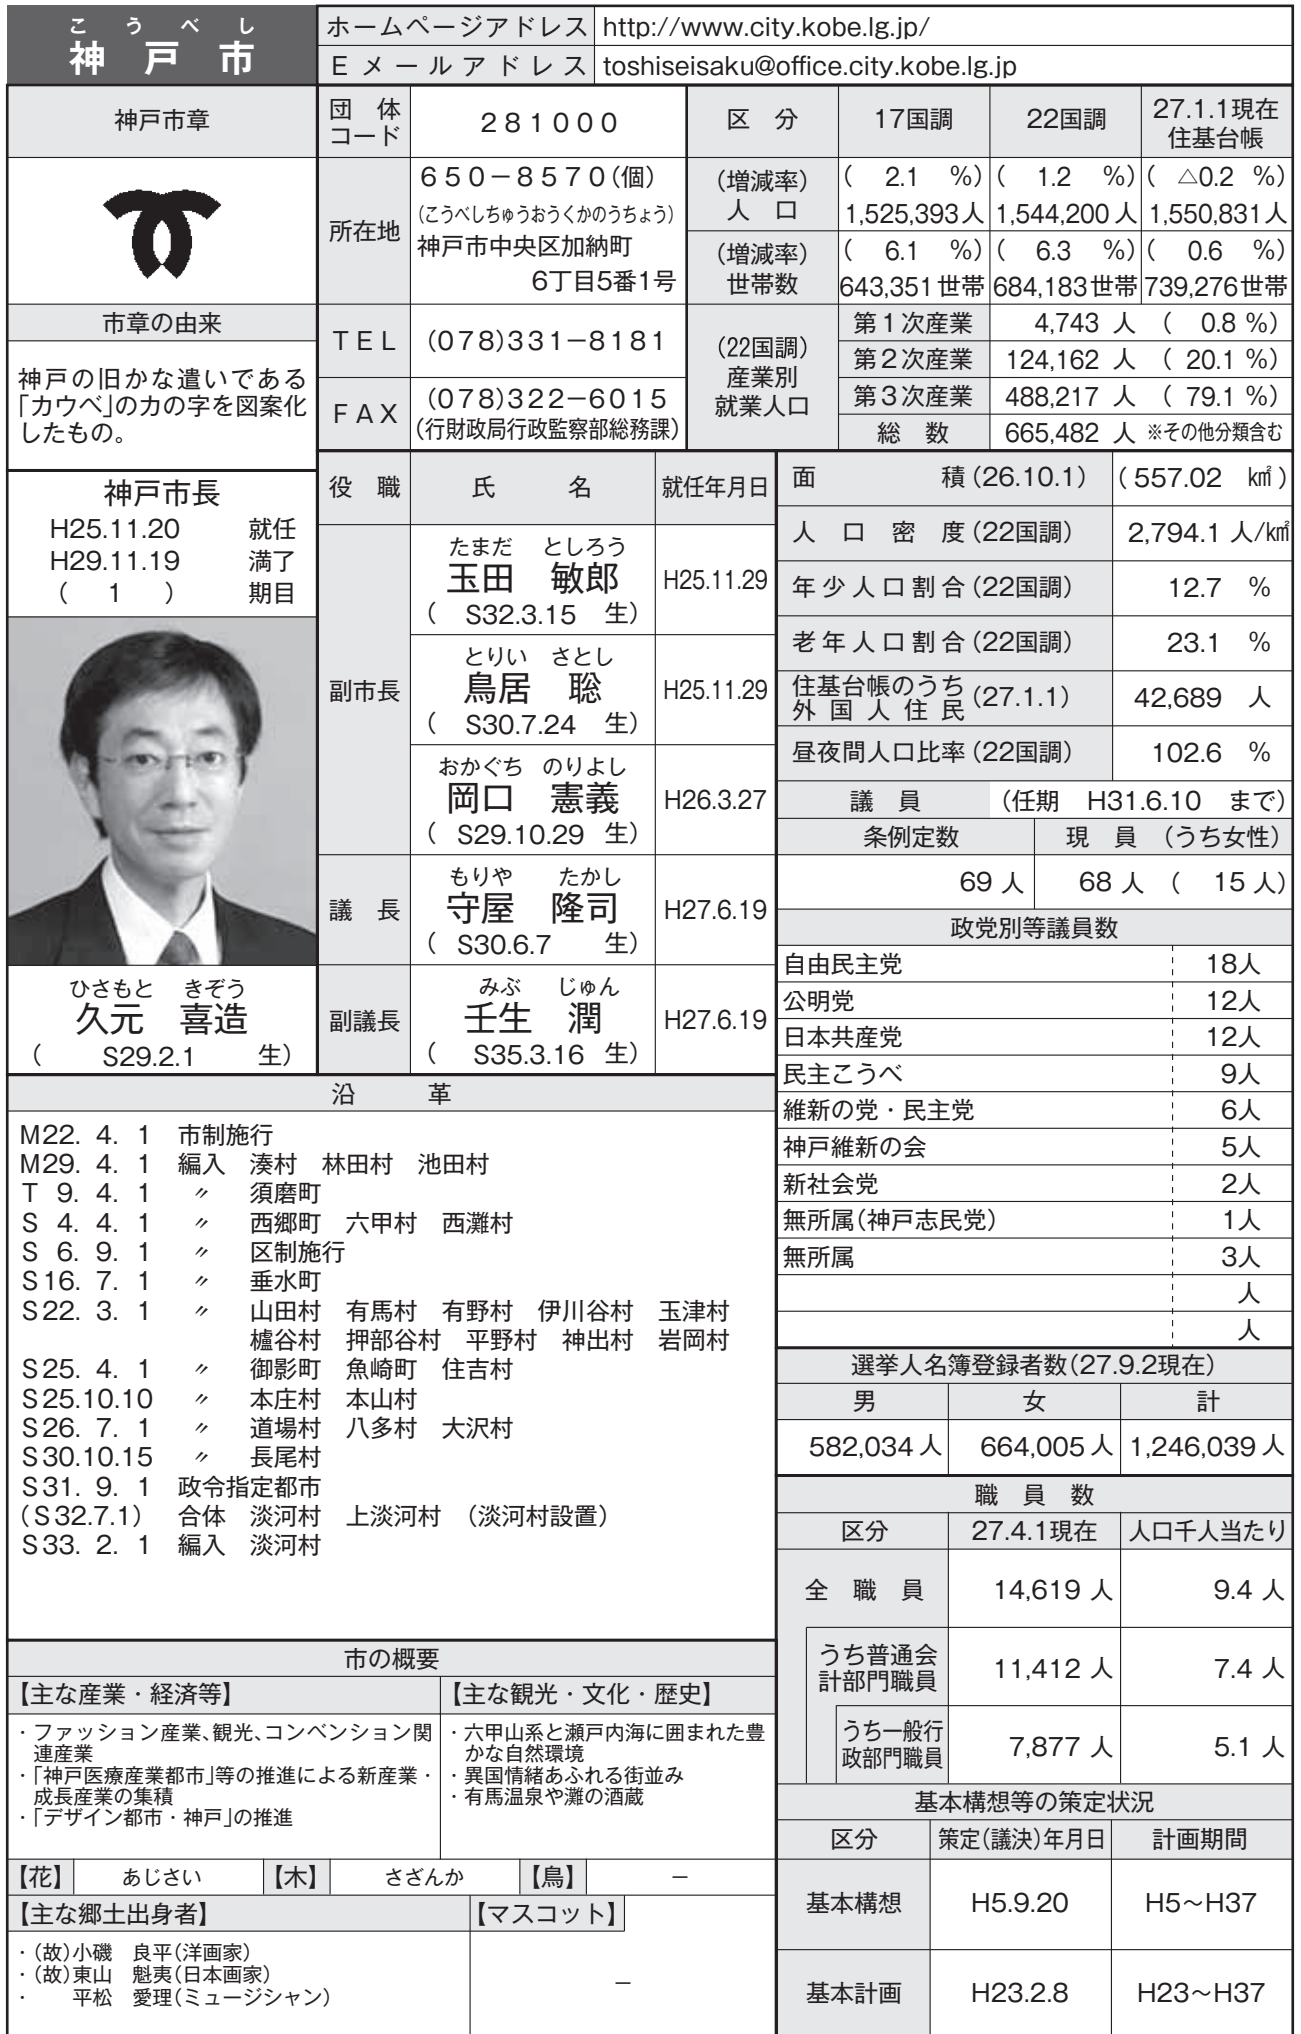 こうべし
神戸市
ホームページアドレス http://www.city.kobe.lg.jp/
Eメールアドレス toshiseisaku@office.city.kobe.lg.jp
神戸市章
市章の由来
神戸の旧かな遣いである
「カウベ」のカの字を図案化
したもの。
団体コード 281000
所在地
650－8570(個)
(こうべしちゅうおうくかのうちょう)
神戸市中央区加納町
6丁目5番1号
TEL (078)331－8181
FAX (078)322－6015
(行財政局行政監察部総務課)
区分 17国調 22国調 27.1.1現在住基台帳
(増減率) ( 2.1 %) ( 1.2 %) ( △0.2 %)
人口 1,525,393人 1,544,200人 1,550,831人
(増減率) ( 6.1 %) ( 6.3 %) ( 0.6 %)
世帯数 643,351世帯 684,183世帯 739,276世帯
(22国調)
産業別
就業人口
第1次産業 4,743 人 ( 0.8 %)
第2次産業 124,162 人 ( 20.1 %)
第3次産業 488,217 人 ( 79.1 %)
総数 665,482 人 ※その他分類含む
神戸市長
H25.11.20 就任
H29.11.19 満了
( 1 ) 期目
ひさもと きぞう
久元 喜造
( S29.2.1 生)
役職 氏名 就任年月日
副市長
たまだ としろう
玉田 敏郎 H25.11.29
( S32.3.15 生)
とりい さとし
鳥居 聡 H25.11.29
( S30.7.24 生)
おかぐち のりよし
岡口 憲義 H26.3.27
( S29.10.29 生)
議長
もりや たかし
守屋 隆司 H27.6.19
( S30.6.7 生)
副議長
みぶ じゅん
壬生 潤 H27.6.19
( S35.3.16 生)
面積(26.10.1) (557.02 ㎢)
人口密度(22国調) 2,794.1 人/㎢
年少人口割合(22国調) 12.7 %
老年人口割合(22国調) 23.1 %
住基台帳のうち
外国人住民 (27.1.1) 42,689 人
昼夜間人口比率(22国調) 102.6 %
議員 (任期 H31.6.10 まで)
条例定数 現員 (うち女性)
69 人 68 人 ( 15 人)
政党別等議員数
自由民主党 18人
公明党 12人
日本共産党 12人
民主こうべ 9人
維新の党・民主党 6人
神戸維新の会 5人
新社会党 2人
無所属(神戸志民党) 1人
無所属 3人
人
人
選挙人名簿登録者数(27.9.2現在)
男 女 計
582,034人 664,005人 1,246,039人
職員数
区分 27.4.1現在 人口千人当たり
全職員 14,619 人 9.4 人
うち普通会
計部門職員 11,412 人 7.4 人
うち一般行
政部門職員 7,877 人 5.1 人
基本構想等の策定状況
区分 策定(議決)年月日 計画期間
基本構想 H5.9.20 H5～H37
基本計画 H23.2.8 H23～H37
沿革
M22. 4. 1 市制施行
M29. 4. 1 編入 湊村 林田村 池田村
T 9. 4. 1 〃 須磨町
S 4. 4. 1 〃 西郷町 六甲村 西灘村
S 6. 9. 1 〃 区制施行
S16. 7. 1 〃 垂水町
S22. 3. 1 〃 山田村 有馬村 有野村 伊川谷村 玉津村
櫨谷村 押部谷村 平野村 神出村 岩岡村
S25. 4. 1 〃 御影町 魚崎町 住吉村
S25.10.10 〃 本庄村 本山村
S26. 7. 1 〃 道場村 八多村 大沢村
S30.10.15 〃 長尾村
S31. 9. 1 政令指定都市
(S32.7.1) 合体 淡河村 上淡河村 (淡河村設置)
S33. 2. 1 編入 淡河村
市の概要
【主な産業・経済等】
・ファッション産業､観光､コンベンション関
連産業
・「神戸医療産業都市」等の推進による新産業・
成長産業の集積
・「デザイン都市・神戸」の推進
【主な観光・文化・歴史】
・六甲山系と瀬戸内海に囲まれた豊
かな自然環境
・異国情緒あふれる街並み
・有馬温泉や灘の酒蔵
【花】 あじさい 【木】 さざんか 【鳥】 －
【主な郷土出身者】
・(故)小磯 良平(洋画家)
・(故)東山 魁夷(日本画家)
・ 平松 愛理(ミュージシャン)
【マスコット】
－